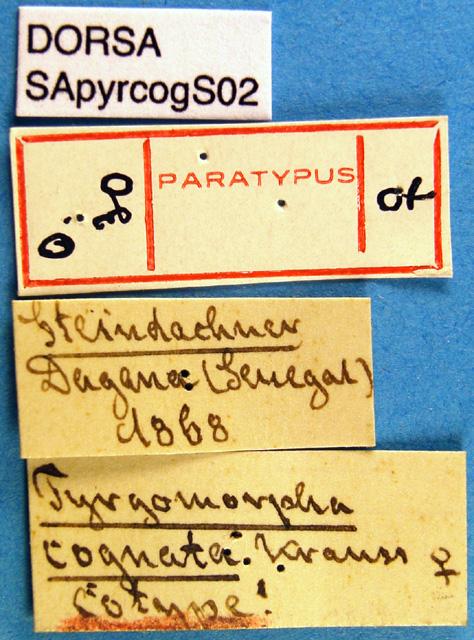 DORSA
SApyrcogS02
PARATYPUS
Steindachner
Dagana (Senegal)
1868
Pyrgomorpha
cognata: Krauss ♀
Cotype!